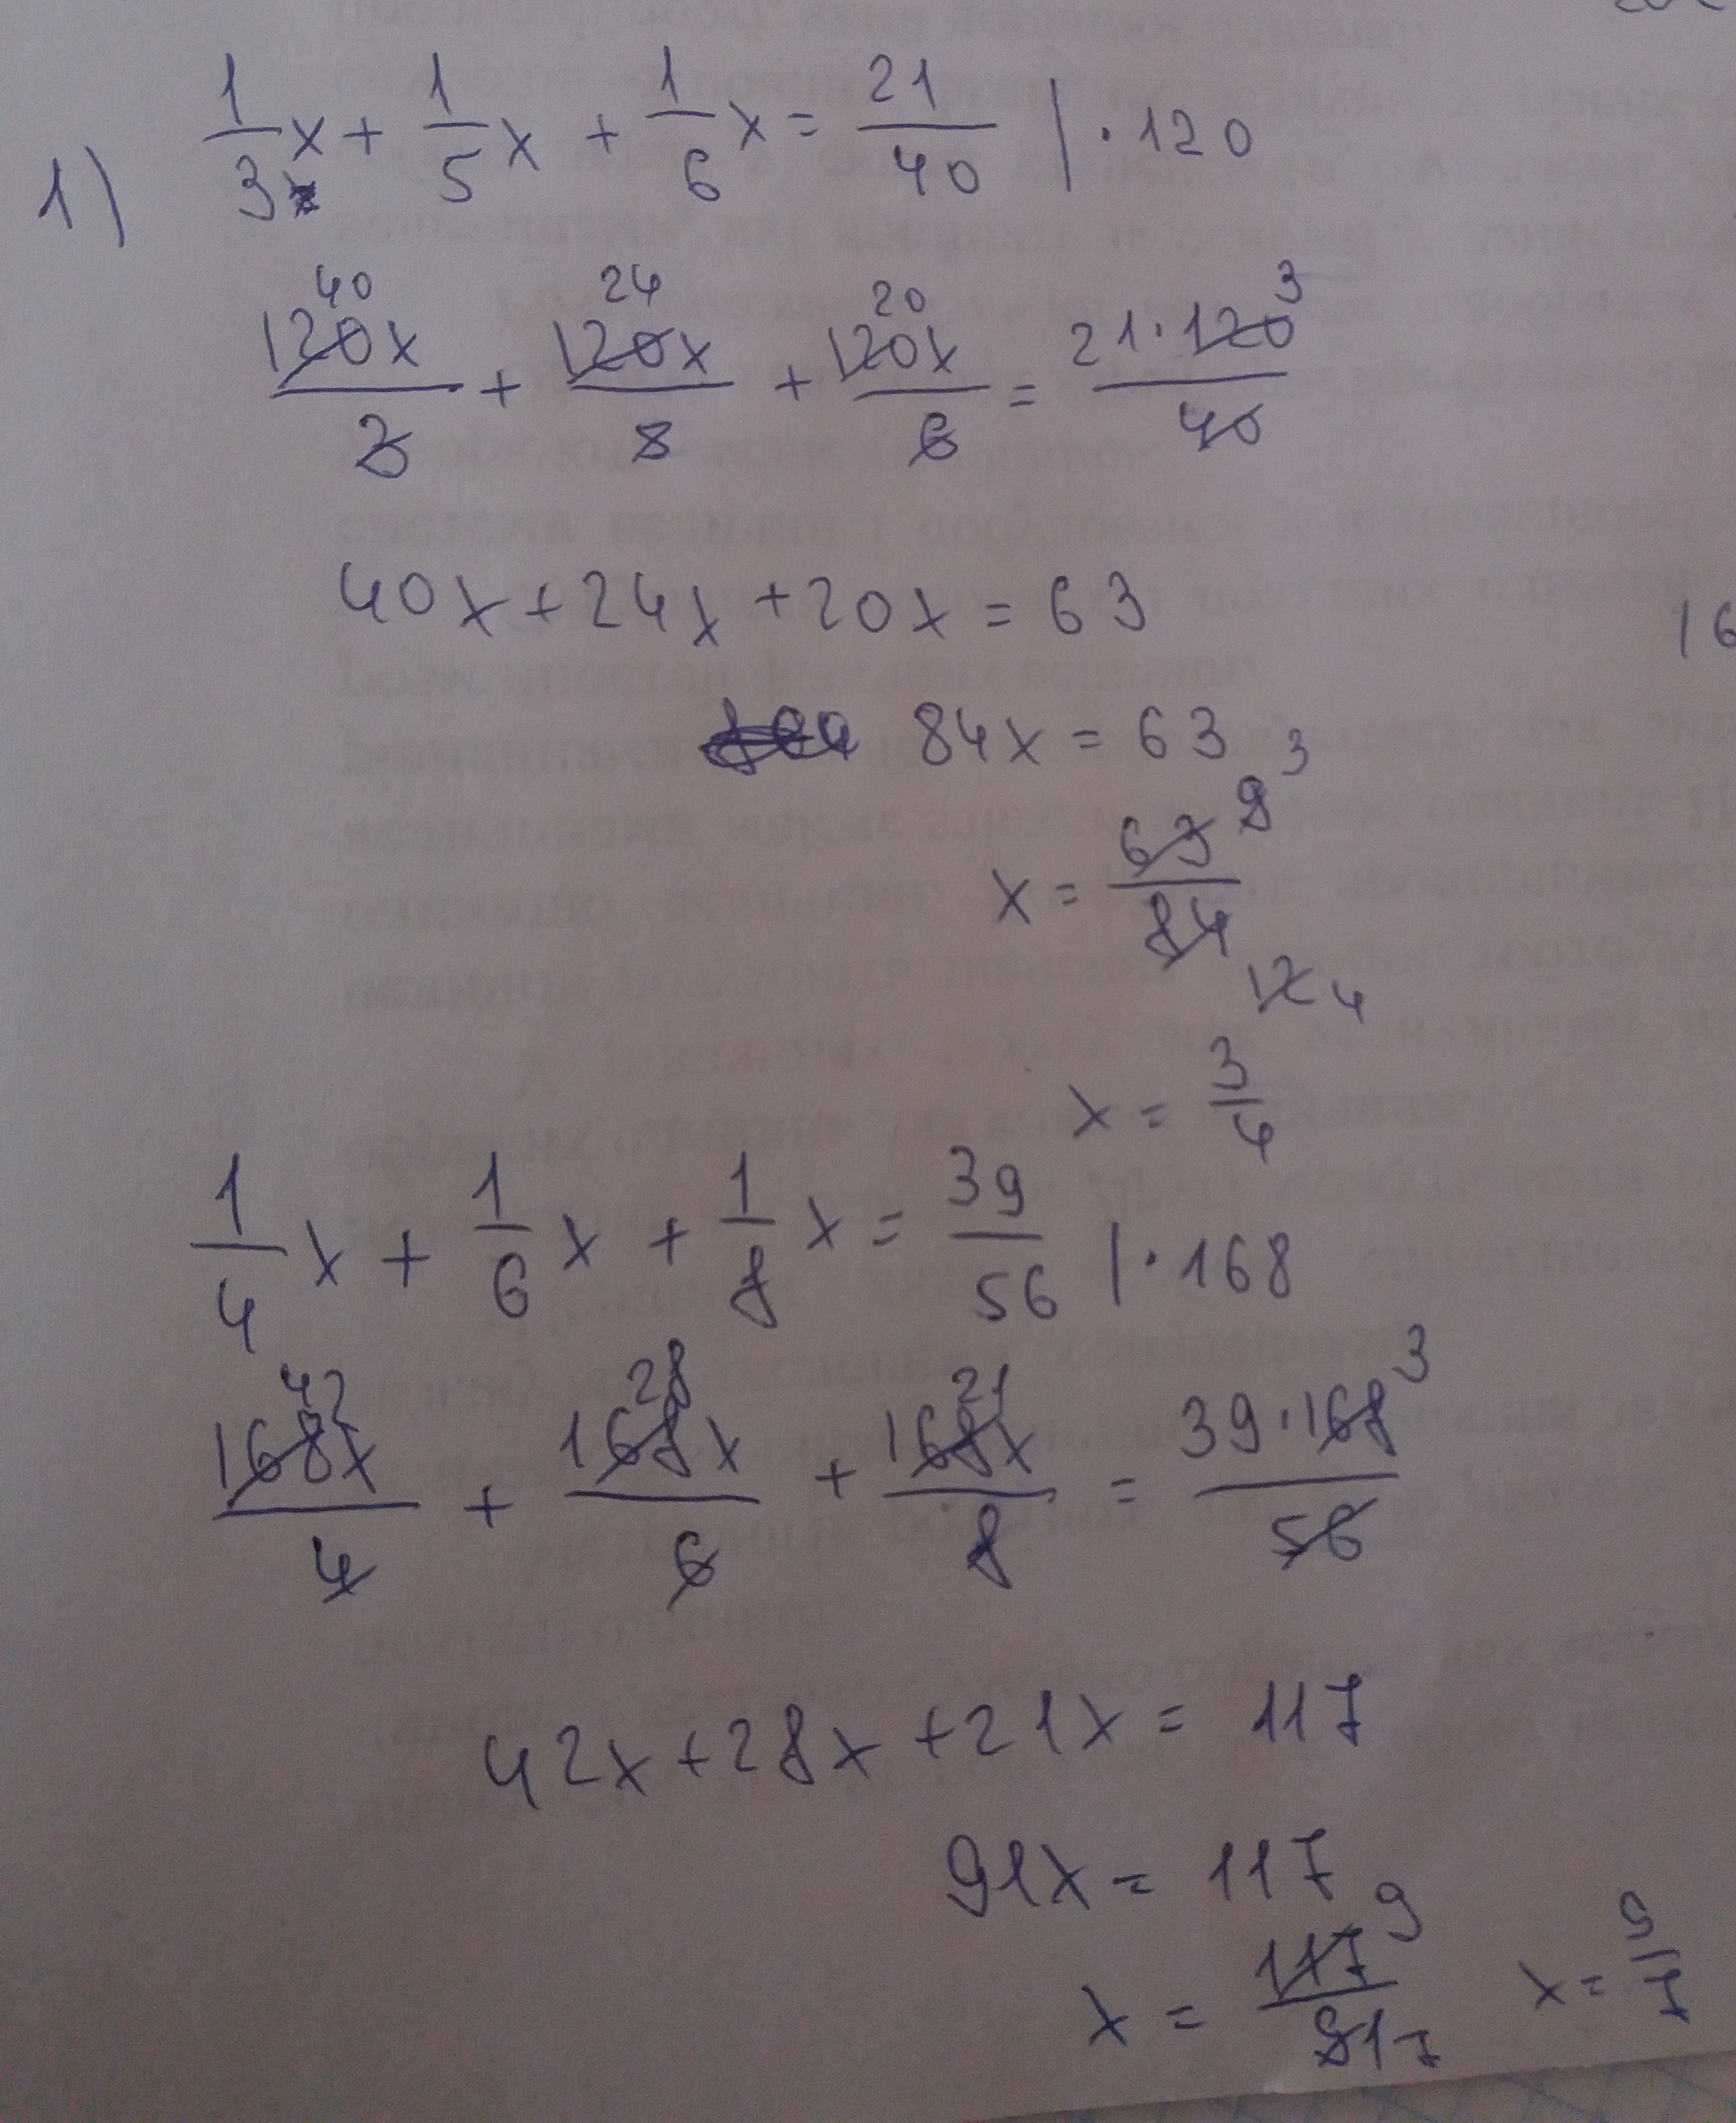 1) 1/3 x + 1/5 x + 1/6 x = 21/40 | · 120
40 24 20 3
120x/3 + 120x/5 + 120x/6 = 21 · 120/40
40x + 24x + 20x = 63
16
84x = 63
3
9
x = 63/84
12 4
x = 3/4
1/4 x + 1/6 x + 1/8 x = 39/56 | · 168
42 28 21 3
168x/4 + 168x/6 + 168x/8 = 39 · 168/56
42x + 28x + 21x = 117
91x = 117
9
x = 117/91 x = 9/7
7